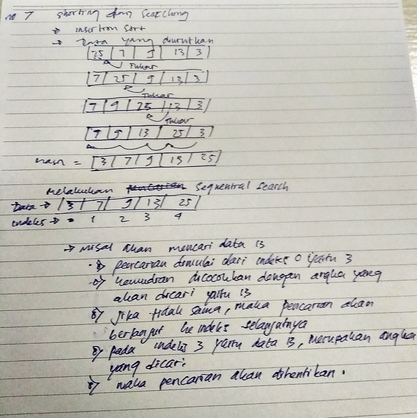 no 7 shorting dan Searching
→ insertion sort
→ Data yang diurutkan
| 25 | 7 | 9 | 13 | 3 |
tukar
| 7 | 25 | 9 | 13 | 3 |
tukar
| 7 | 9 | 25 | 13 | 3 |
tukar
| 7 | 9 | 13 | 25 | 3 |
= | 3 | 7 | 9 | 13 | 25 |
Melakukan Sequential Search
Data → | 3 | 7 | 9 | 13 | 25 |
indeks = 1 2 3 4
→ misal akan mencari data 13
pencarian dimulai dari indeks 0 yaitu 3
kemudian dicocokan dengan angka yang
akan dicari yaitu 13
jika tidak sama, maka pencarian akan
berlanjut ke indeks selanjutnya
pada indeks 3 yaitu data 13, merupakan angka
yang dicari.
maka pencarian akan dihentikan.